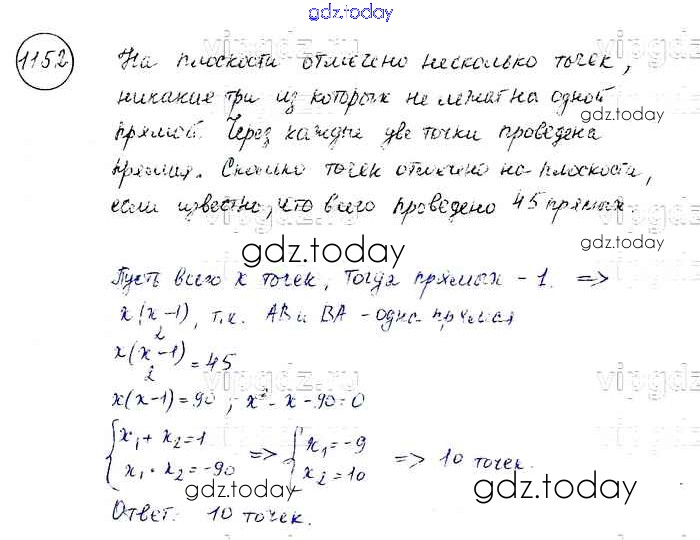 gdz.today
1152 На плоскости отмечено несколько точек,
никакие три из которых не лежат на одной
gdz.today
прямой. Через каждые две точки проведена
прямая. Сколько точек отмечено на плоскости,
если известно, что всего проведено 45 прямых.
gdz.today
Пусть всего x точек, тогда прямых - 1. =>
x(x-1)/2, т.к. AB и BA - одна прямая
x(x-1)/2 = 45
x(x-1)=90; x²-x-90=0
{x₁+x₂=1 => {x₁=-9 => 10 точек.
x₁·x₂=-90 x₂=10
gdz.today
gdz.today
Ответ: 10 точек.
vipgdz.ru
vipgdz.ru